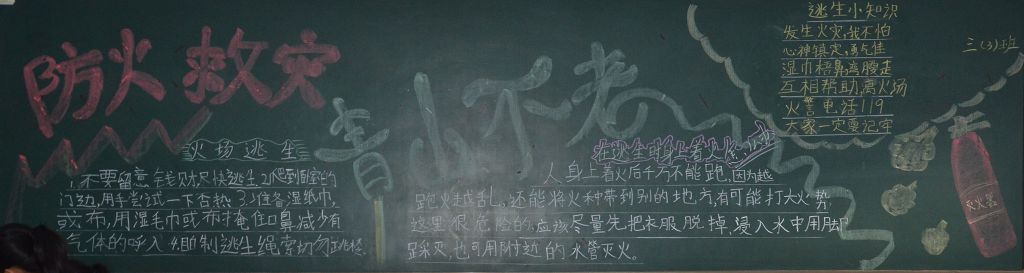 防火救灾
青山不老
火场逃生
1.不要留意钱财尽快逃生2爬到卧室的
门边,用手尝试一下否热 3准备湿纸巾,
或布,用湿毛巾或布掩住口鼻减少有
气体的呼入 4.自制逃生绳索切勿跳楼.
在逃生时身上着火怎么应
人身上着火后千万不能跑,因为越
跑火越乱,还能将火种带到别的地方,有可能打大火势,
这里很危险的,应该尽量先把衣服脱掉,浸入水中用脚
踩灭,也可用附近的水管灭火。
逃生小知识
发生火灾,我不怕
心神镇定,勇气佳
湿巾捂鼻,弯腰走
互相帮助,离火场
火警电话119
大家一定要记牢
三(3)班
灭火器